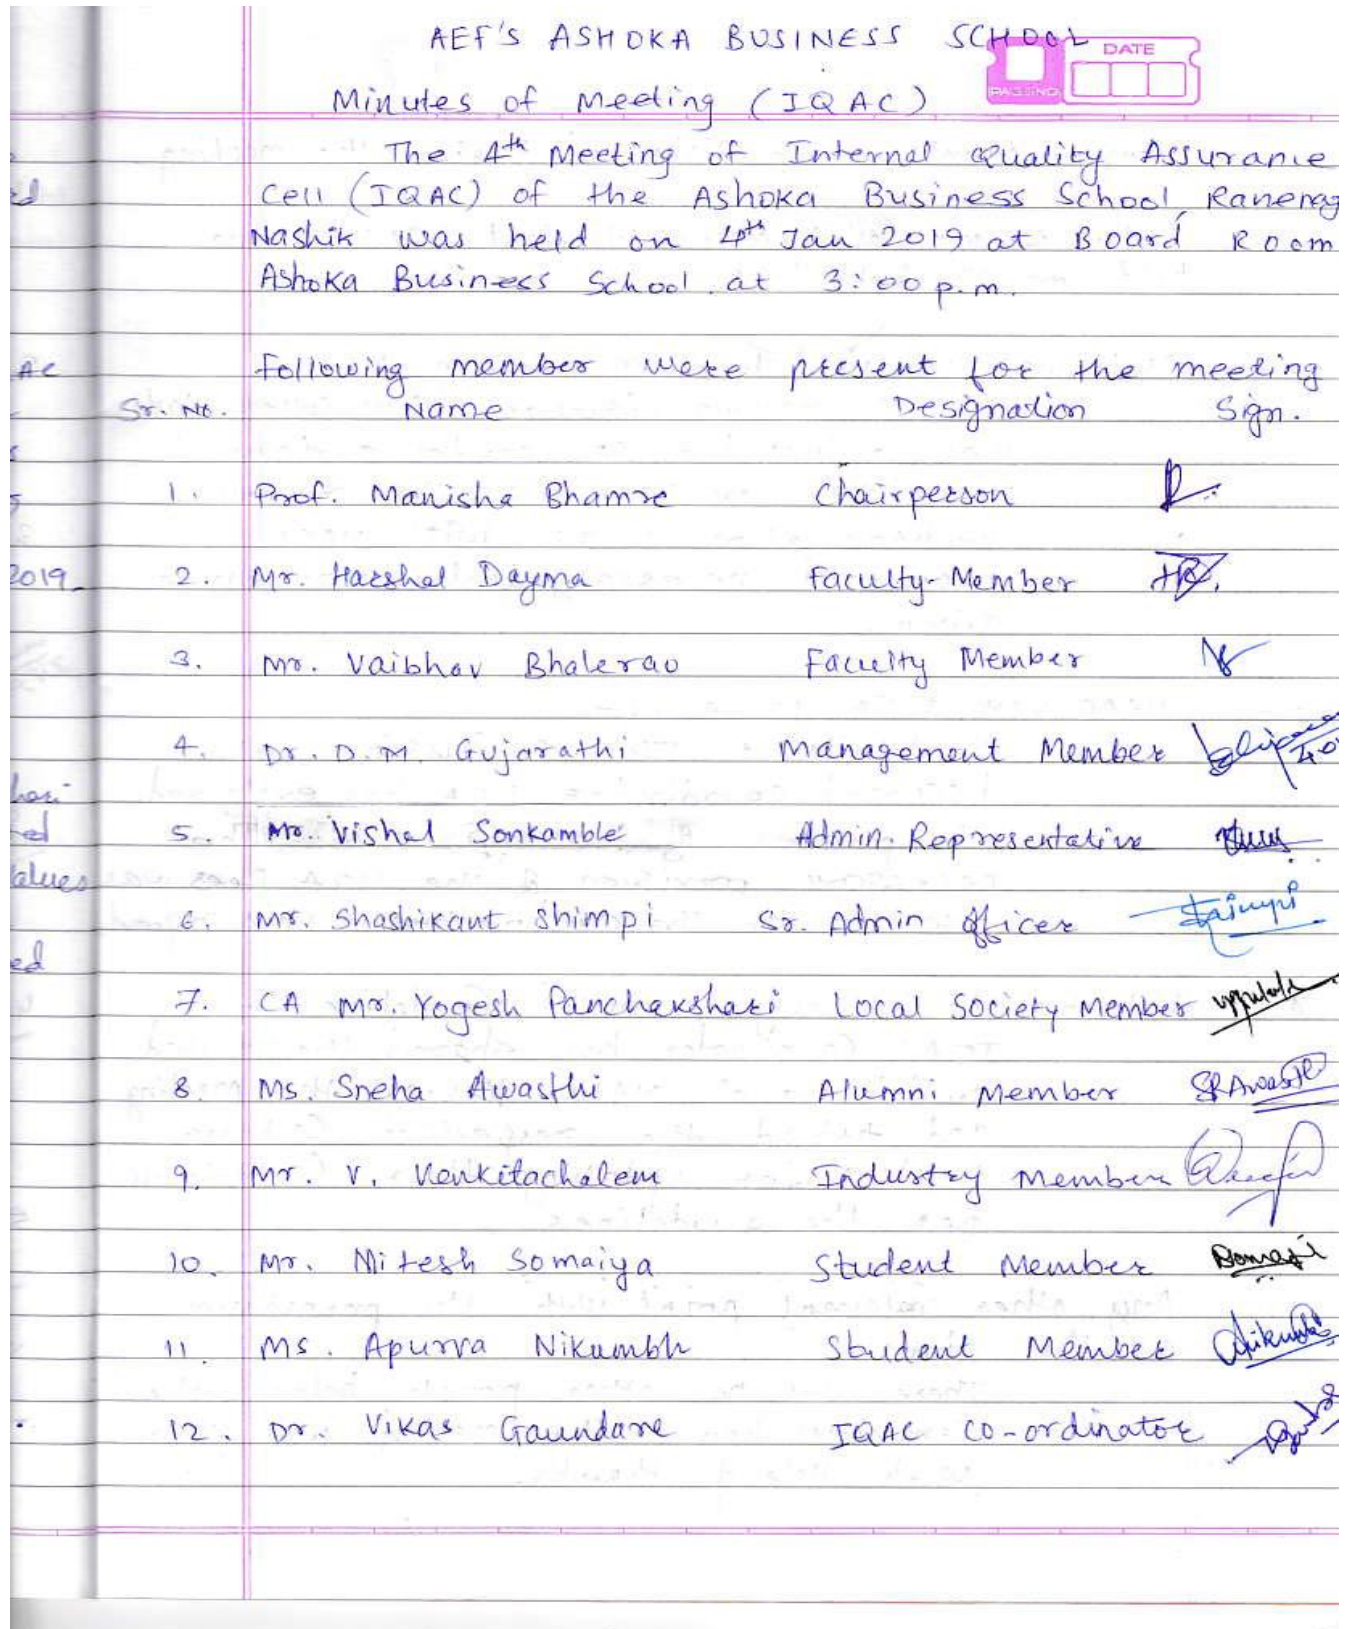 AEF'S ASHOKA BUSINESS SCHOOL
DATE
PAGE NO.
Minutes of Meeting (IQAC)
The 4th Meeting of Internal Quality Assurance
ed
Cell (IQAC) of the Ashoka Business School,
Nashik was held on 4th Jan 2019 at Board Room
Ashoka Business School. at 3:00 p.m.
AC
Following member were present for the meeting
Sr. No. Name Designation Sign.
1. Prof. Manisha Bhamre Chairperson
2019
2. Mr. Harshal Dayma Faculty-Member
3. Mr. Vaibhav Bhalerao Faculty Member
4. Dr. D.M. Gujarathi Management Member
5. Mr. Vishal Sonkamble Admin. Representative
alues
6. Mr. Shashikant Shimpi Sr. Admin Officer
ed
7. CA Mr. Yogesh Panchakshari Local Society Member
8. Ms. Sneha Awasthi Alumni Member SRAwasthi
9. Mr. V. Venkitachalem Industry Member
10. Mr. Nitesh Somaiya Student Member
11. Ms. Apurva Nikumbh Student Member
12. Dr. Vikas Gaundare IQAC Co-ordinator